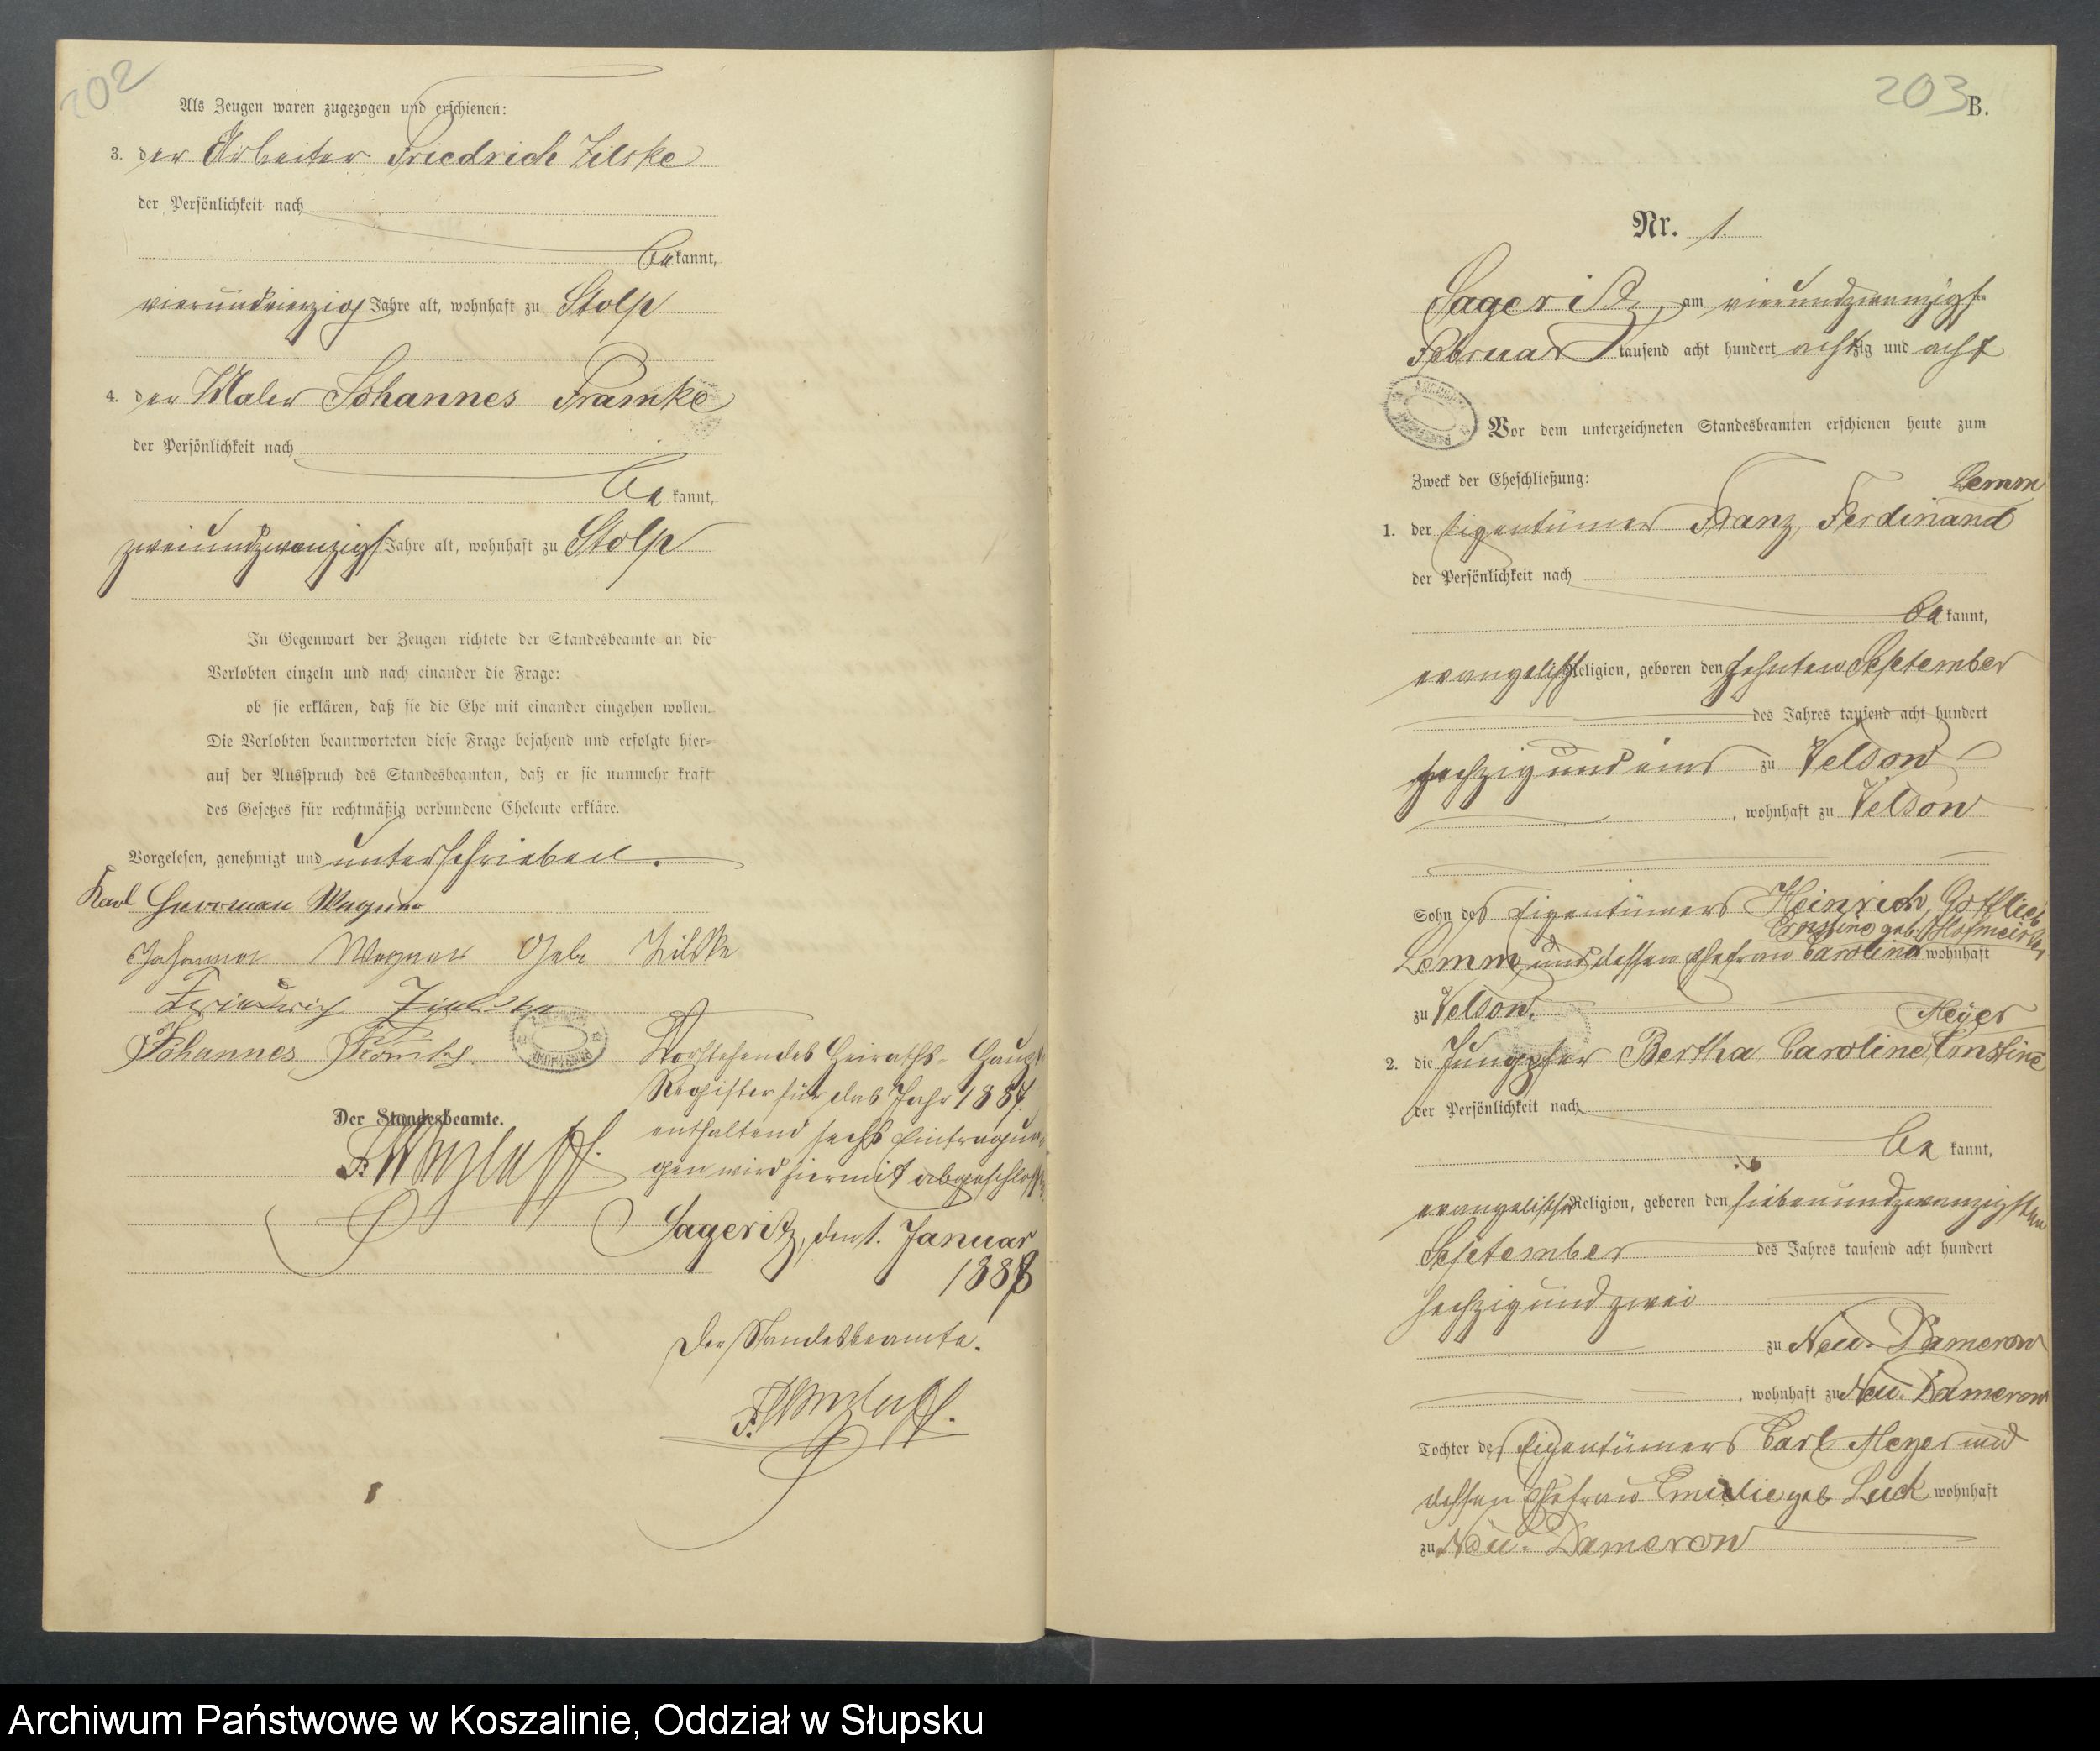 202
Als Zeugen waren zugezogen und erschienen:
3. der Arbeiter Friedrich Zilske
der Persönlichkeit nach
bekannt,
vierundvierzig Jahre alt, wohnhaft zu Stolp
4. der Maler Johannes Framke
der Persönlichkeit nach
bekannt,
zweiundzwanzig Jahre alt, wohnhaft zu Stolp
In Gegenwart der Zeugen richtete der Standesbeamte an die
Verlobten einzeln und nach einander die Frage:
ob sie erklären, daß sie die Ehe mit einander eingehen wollen.
Die Verlobten beantworteten diese Frage bejahend und erfolgte hier-
auf der Ausspruch des Standesbeamten, daß er sie nunmehr kraft
des Gesetzes für rechtmäßig verbundene Eheleute erkläre.
Vorgelesen, genehmigt und unterschrieben.
Karl Herrman Wagner
Johanna Wagner geb Zilske
Friedrich
Johannes
Der Standesbeamte.
Vorstehendes Heiraths-Haupt-
Register für das Jahr 1887.
enthaltend sechs Eintragun-
gen wird hiermit abgeschlossen
Sageritz, den 1. Januar
1888
Der Standesbeamte.
203
B.
Nr. 1.
Sageritz, am vierundzwanzigsten
Februar tausend acht hundert achtzig und acht
Vor dem unterzeichneten Standesbeamten erschienen heute zum
Zweck der Eheschließung:
Lemm
1. der Eigentümer Franz, Ferdinand
der Persönlichkeit nach
bekannt,
evangelischer Religion, geboren den zehnten September
des Jahres tausend acht hundert
sechzig und eins zu Velsow
, wohnhaft zu Velsow
Sohn des Eigentümers Heinrich, Gottlieb
Ernstine geb. Hofmeister
Lemm und dessen Ehefrau Caroline wohnhaft
zu Velsow.
Meyer
2. die Jungfer Bertha Caroline Ernstine
der Persönlichkeit nach
bekannt,
evangelischer Religion, geboren den siebenundzwanzigsten
September des Jahres tausend acht hundert
sechzig und zwei
zu Neu-Damerow
, wohnhaft zu Neu-Damerow
Tochter des Eigentümers Carl Meyer und
dessen Ehefrau Emielie geb Luck wohnhaft
zu Neu-Damerow
Archiwum Państwowe w Koszalinie, Oddział w Słupsku